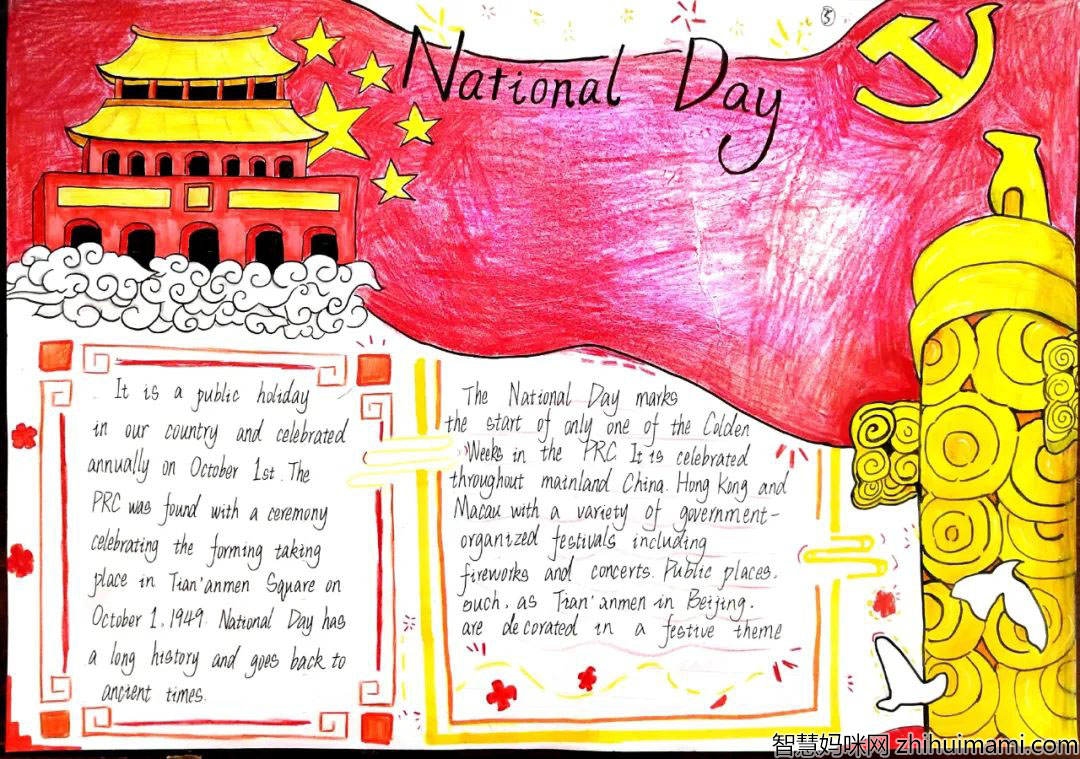 National Day
5
It is a public holiday
in our country and celebrated
annually on October 1st. The
PRC was found with a ceremony
celebrating the forming taking
place in Tian'anmen Square on
October 1, 1949. National Day has
a long history and goes back to
ancient times.
The National Day marks
the start of only one of the Colden
Weeks in the PRC It is celebrated
throughout mainland China. Hong Kong and
Macau with a variety of government-
organized festivals including
fireworks and concerts. Public places.
such, as Tian'anmen in Beijing.
are decorated in a festive theme
智慧妈咪网 zhihuimami.com